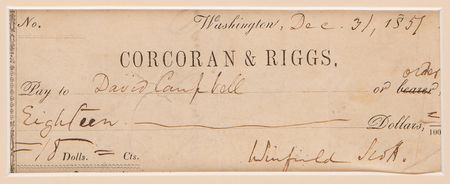 No. Washington, Dec. 31, 1851
CORCORAN & RIGGS,
order
Pay to David Campbell or bearer,
Eighteen Dollars, 100
18 Dolls. = Cts.
Winfield Scott.